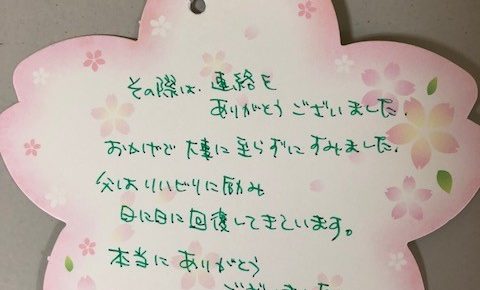 その際は、連絡を
ありがとうございました.
おかげで 大事に至らずにすみました.
父はリハビリに励み
日に日に回復してきています。
本当に ありがとう
ございました